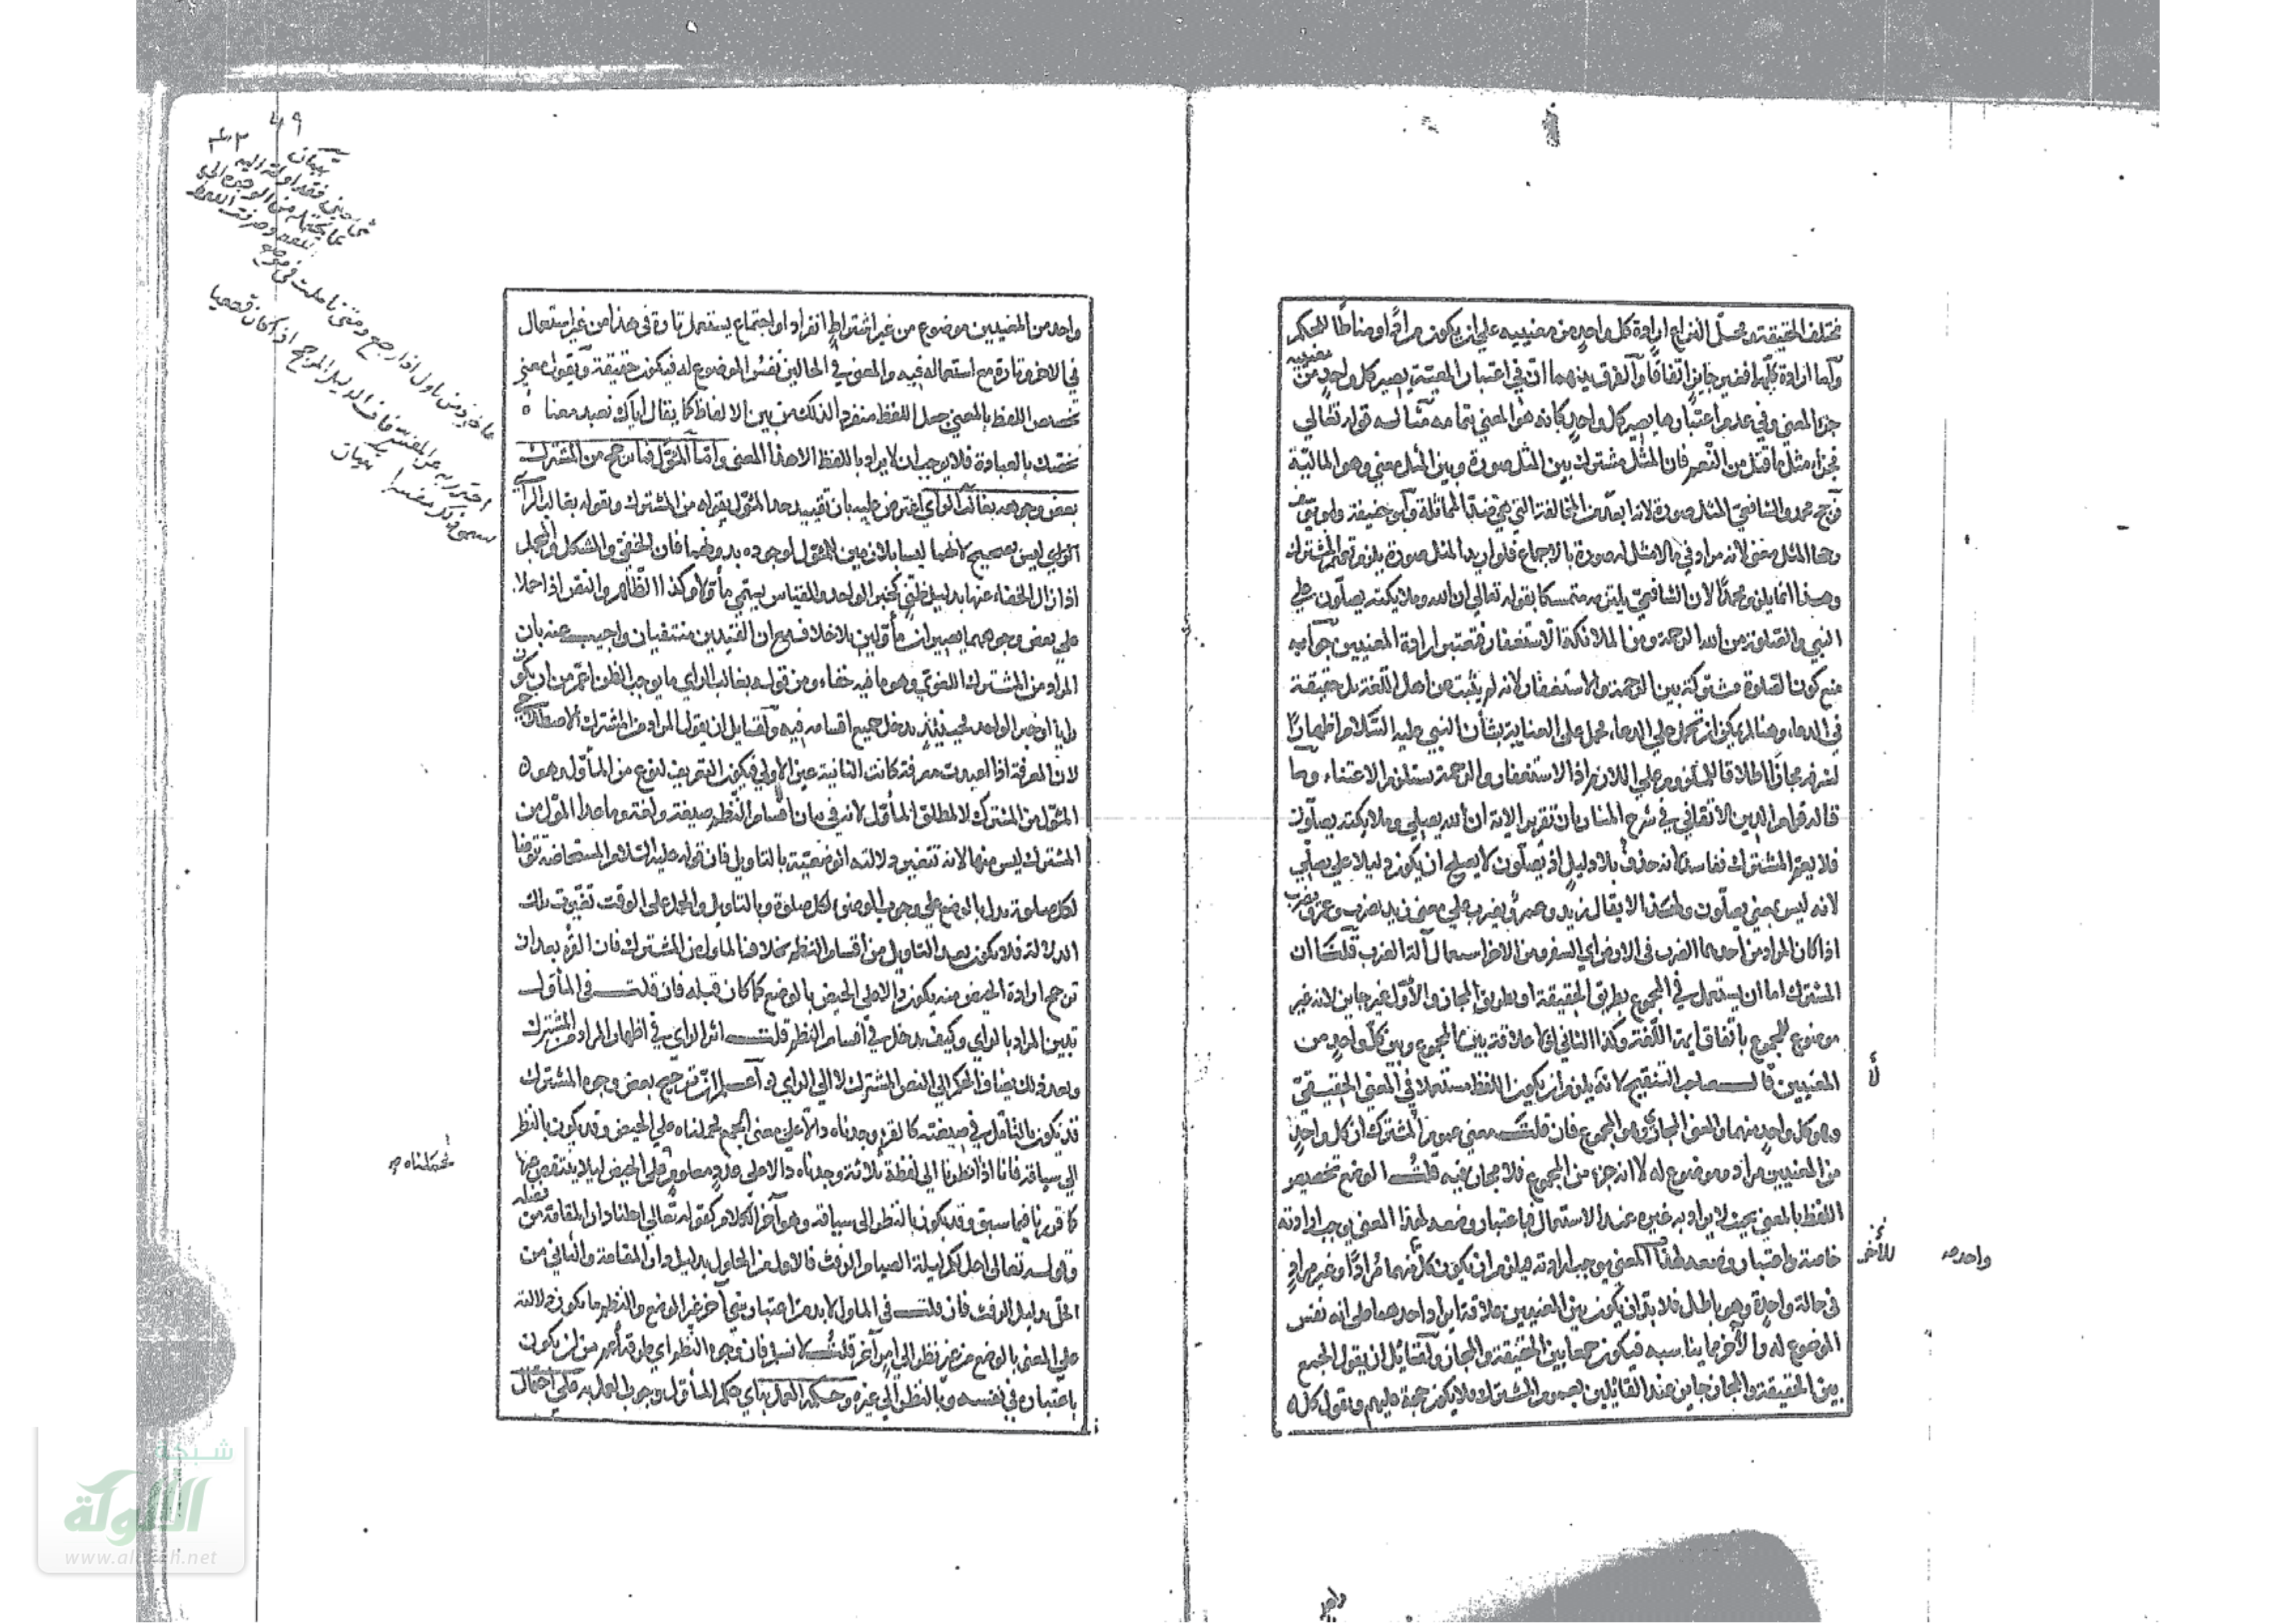 مختلف الحقيقة ومحل النزاع ارادة كل واحد من معنييه على ان يكون مرادا ومناطا للحكم
واما ارادة كليهما فغير جايز اتفاقا والفرق بينهما ان في اعتبار المعية يصير كل واحد من معنييه
جزا لمعنى وفي عدم اعتبارها يصير كل واحد كانه هو المعنى بتمامه مثاله قوله تعالى
فجزاء مثل ما قتل من النعم فان المثل مشترك بين المثل صورة وبين المثل معنى وهو المالية
فرجح محمد والشافعي المثل صورة لانه ابعد من المخالفة التي هي ضد المماثلة وابو حنيفة وابو يوسف
رحهما المثل معنى لانه مراد في ما لا مثل له صورة بالاجماع فلو اريد المثل صورة يلزم عموم المشترك
وهذا انما يلزم محمدا لان الشافعي يلتزمه متمسكا بقوله تعالى ان الله وملايكته يصلون على
النبي والصلوة من الله الرحمة ومن الملائكة الاستغفار فتعتبر ارادة المعنيين جوابه
منع كون الصلوة مشتركة بين الرحمة والاستغفار لانه لم يثبت من اهل اللغة بل حقيقة
في الدعاء وهنا لم يمكن ان تحمل على الدعاء تحمل على العناية بشأن النبي عليه السلام اظهارا
لشرفه مجازا اطلاقا للملزوم على اللازم اذ الاستغفار والرحمة يستلزم الاعتناء وما
قاله قوام الدين الاتقاني في شرح المنار بان تقرير الاية ان الله يصلي وملايكته يصلون
فلا يعم المشترك ففاسد لانه حذف بلا دليل اذ يصلون لا يصلح ان يكون دليلا على يصلي
لانه ليس بمعنى يصلون ولهذا لا يقال زيد وعمرو يضرب على معنى زيد يضرب وعمرو يضرب
اذا كان المراد من احدهما الضرب في الارض اي السفر ومن الاخر استعمال آلة الضرب قلنا ان
المشترك اما ان يستعمل في المجموع بطريق الحقيقة او بطريق المجاز والاول غير جايز لانه غير
موضوع للمجموع باتفاق ايمة اللغة وكذا الثاني اذ لا علاقة بين المجموع وبين كل واحد من
المعنيين قال صاحب التنقيح لانه يلزم ان يكون اللفظ مستعملا في المعنى الحقيقي
وهو كل واحد منهما والمعنى المجازي وهو المجموع فان قلت معنى عموم المشترك ان كل واحد
من المعنيين مراد وموضوع له لا انه جزء من المجموع فلا مجاز فيه قلت الوضع تخصيص
اللفظ بالمعنى بحيث لا يراد به غيره عند الاستعمال فباعتبار وضعه لهذا المعنى يوجب ارادته
خاصة واعتبار وضعه لهذا المعنى يوجب ارادته فيلزم ان يكون كل منهما مرادا وغير مراد
في حالة واحدة وهو باطل فلا بد ان يكون بين المعنيين علاقة ايراد احدهما على انه نفس
الموضوع له والآخر بما يناسبه فيكون جمعا بين الحقيقة والمجاز ولقايل ان يقول الجمع
بين الحقيقة والمجاز جايز عند القائلين بعموم المشترك فلا يكون حجة عليهم ونقول كل
لأ
للأخر
واحد
واحد
واحد من المعنيين موضوع من غير اشتراط انفراد او اجتماع يستعمل تارة في هذا من غير استعمال
في الاخر وتارة مع استعماله فيه والمعنى في الحالين نفس الموضوع له فيكون حقيقة ويقول معنى
تخصص اللفظ بالمعنى جعل اللفظ منفردا لذلك من بين الالفاظ كما يقال اياك نعبد معنا
نخصك بالعبادة فلا يوجب ان لا يراد باللفظ الا هذا المعنى واما المئول فما ترجح من المشترك
بعض وجوهه بغالب الراي اعترض عليه بان تقييد حد المئول بقوله من المشترك وبقوله بغالب الرا
الراي ليس بصحيح لانهما ليسا بلازمين للمئول لوجوده بدونهما فان الخفي والمشكل والمجمل
اذا زال الخفاء عنها بدليل ظني كخبر الواحد والقياس يسمى مأولا وكذا الظاهر والنص اذا حملا
على بعض وجوههما يصيران مأولين بلا خلاف مع ان القيدين منتفيان واجيب عنه بان
المراد من المشترك اللغوي وهو ما فيه خفاء ومن قوله بغالب الراي ما يوجب الظن اعم من ان يكون
رايا او خبر الواحد فحينئذ يدخل جميع اقسامه فيه ولقايل ان يقول المراد من المشترك الاصطلاحي
لان المعرفة اذا اعيدت معرفة كانت الثانية عين الاولى فيكون التعريف لنوع من المأول وهو
المئول من المشترك لا لمطلق المأول لانه في بيان اقسام النظم صيغة ولغة وما عدا المئول من
المشترك ليس منها لانه تتغير دلالته الوضعية بالتاويل فان قوله عليه السلام المستحاضة تتوضا
لكل صلوة يدل بالوضع على وجوب الوضوء لكل صلوة وبالتاويل والحمل على الوقت تغيرت تلك
الدلالة فلا يكون بعد التاويل من اقسام النظم بخلاف الماول من المشترك فان القرء بعد ان
ترجح ارادة الحيض منه يكون دالا على الحيض بالوضع كما كان قبله فان قلت في المأول
تبين المراد بالراي وكيف يدخل في اقسام النظم قلت اثر الراي في اظهار المراد من المشترك
وبعد ذلك يضاف الحكم الى النص المشترك لا الى الراي واعلم ان ترجيح بعض وجوه المشترك
قد يكون بالتامل في صيغته كالقرء وجدناه دالا على معنى الجمع فحملناه على الحيض وقد يكون بالنظر
الى سياقه فانا اذا نظرنا الى لفظة ثلاثة وجدناه دالا على عدد معلوم فعلى الحيض ليلا ينتقص عنها
كما قررنا فيما سبق وقد يكون بالنظر الى سباقه وهو آخر الكلام كقوله تعالى احلنا دار المقامة من فضله
وقوله تعالى احل لكم ليلة الصيام الرفث فالاول من الحلول بدليل دار المقامة والثاني من
الحل بدليل الرفث فان قلت في الماول لا بد من اعتبار شئ آخر غير الوضع والنظم ما يكون دلالته
على المعنى بالوضع من غير نظر الى امر آخر قلت لا نسلم فان وجوه النظم اي طرقه اعم من ان يكون
باعتباره في نفسه وبالنظر الى غيره وحكمه العمل به اي حكم المأول وجوب العمل به على احتمال
فحملناه
تبيان
ماخوذ من ماول اذا رجع ومتى تاملت في موضع
احترز به عن المفسر فان الدليل المرجح اذا كان قطعيا
تبيان
شبكة
الألوكة
www.alukah.net